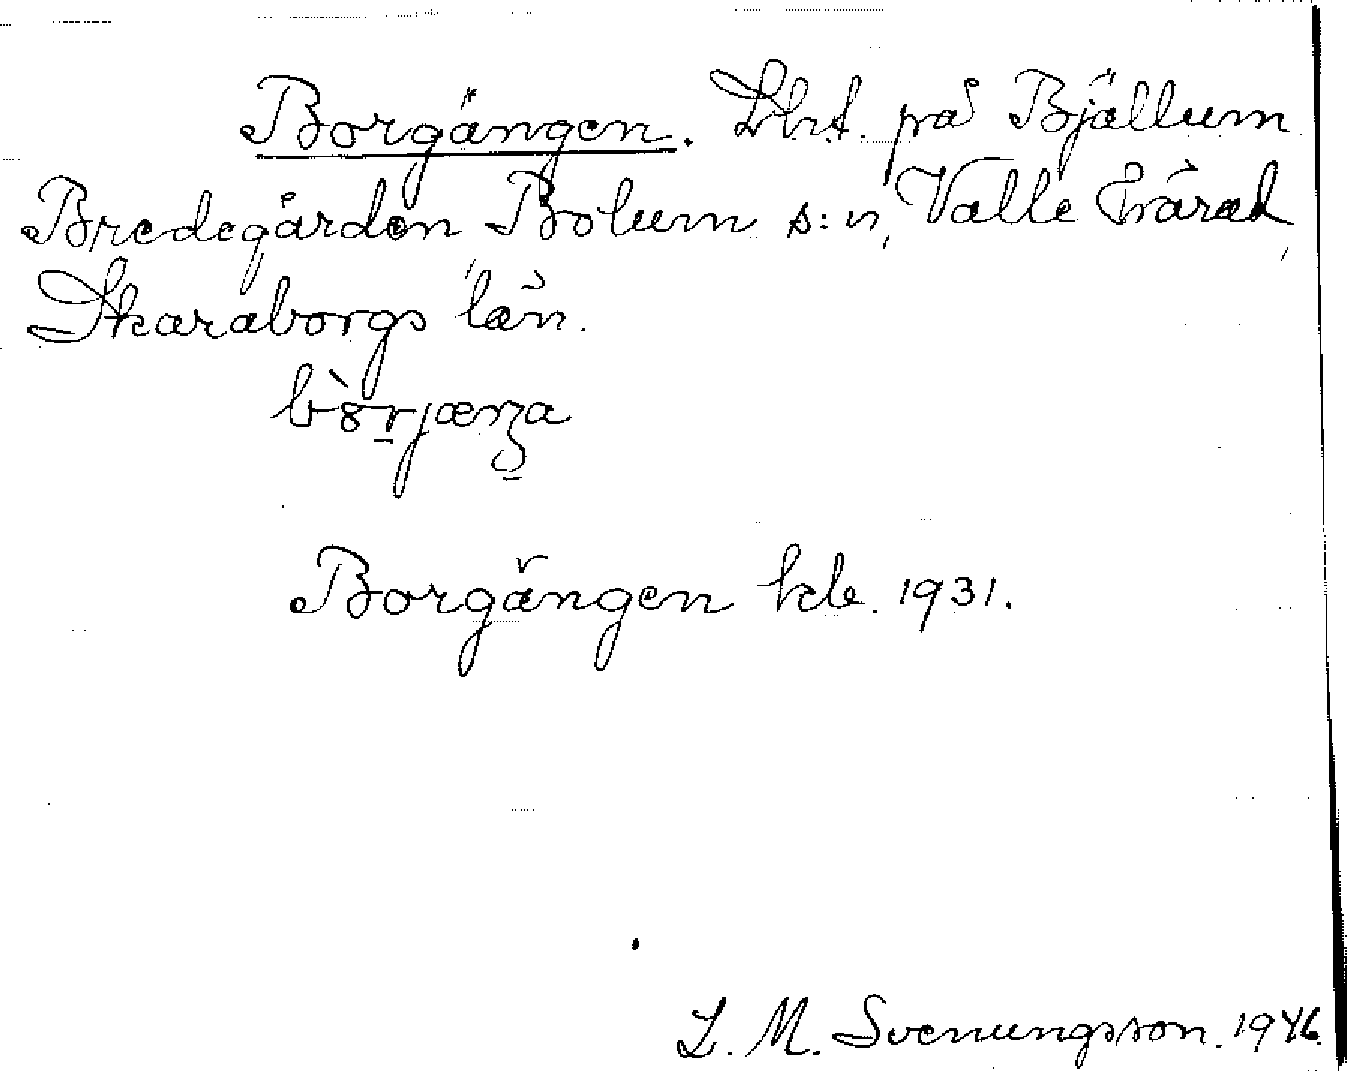 Borgängen. Lht. på Bjällum
Bredegården, Bolum s:n, Valle härad,
Skaraborgs län.
bòrjæŋa
Borgängen kb. 1931.
L. M. Svenungsson. 1946.